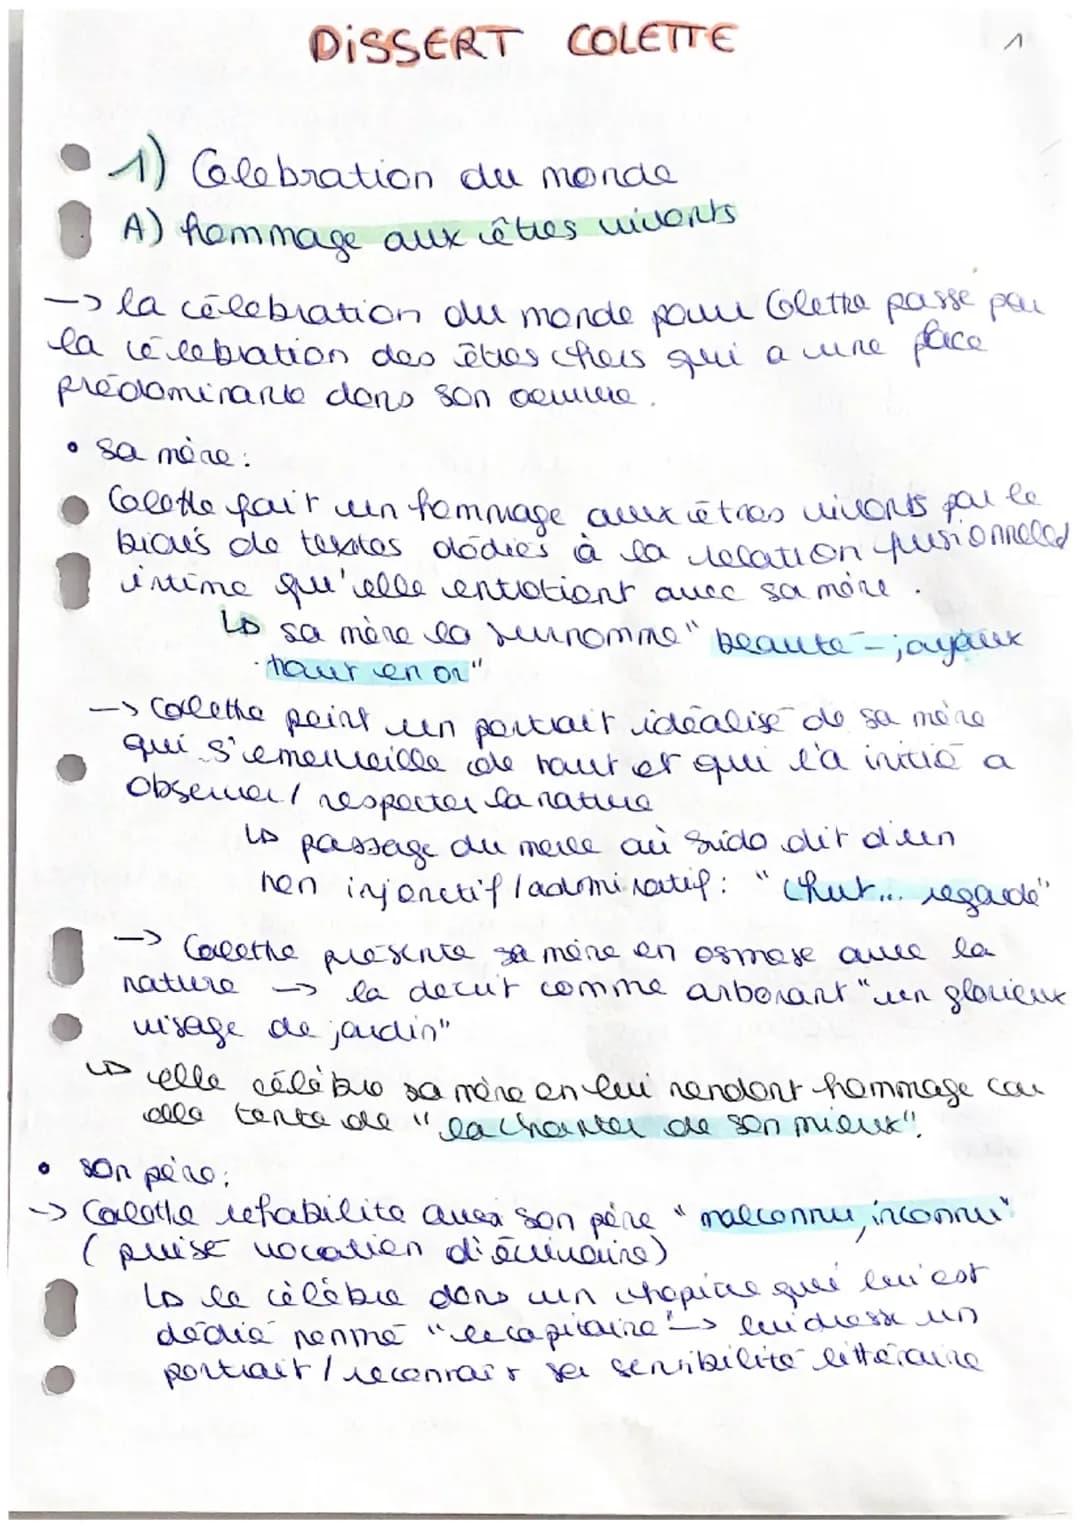 DISSERT COLETTE
1
1) Celebration du monde
A) hommage aux êtres vivants
-> la célebration du monde pour Colette passe par
la célebration des êtres chers qui a une place
prédominante dans son oeuvre.
• sa mère:
Colette fait un hommage aux êtres vivants par le
biais de textes dédiés à la relation fusionnelle/
intime qu'elle entretient avec sa mère.
↳ sa mère la surnomme "beauté", "joyaux
tout en or"
-> Colette peint un portrait idéalisé de sa mère
qui s'émerveille de tout et qui l'a initié a
observer / respecter la nature
↳ passage du merle où Sido dit d'un
ton injonctif / admiratif : "chut... regarde"
-> Colette présente sa mère en osmose avec la
nature -> la decrit comme arborant "un glorieux
visage de jardin"
↳ elle célèbre sa mère en lui rendant hommage car
elle tente de "la chanter de son mieux".
• son père:
-> Colette rehabilite aussi son père "malconnu, inconnu"
( vocation d'écrivaine)
↳ le célèbre dans un chapitre qui lui est
dédié nommé "le capitaine" -> lui dresse un
portrait / reconnait sa sensibilité littéraire